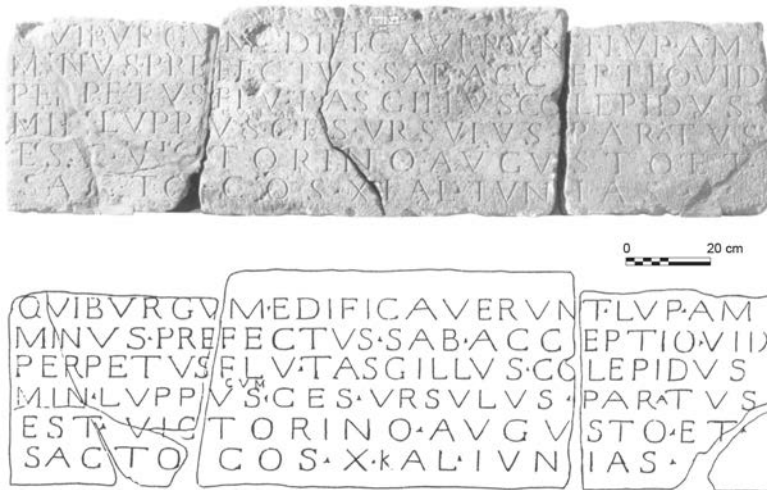 QVIBVRGVM·EDIFICAVERVNT·LVP·AM
MINVS·PREFECTVS·SAB·ACCEPTIO·VIID
PERPETVS FLV·TASGILLVS·COLEPIDVS
MIN·LVPPVS·CES·VRSVLVS·PARATVS
EST·VICTORINO·AVGVSTO·ET
SACTO COS·X·KAL·IVNIAS
0 20 cm
QVIBVRGVM·EDIFICAVERVNT·LVP·AM
MINVS·PREFECTVS·SAB·ACCEPTIO·VIID
PERPETVS FLV·TASGILLVS·COLEPIDVS
CVM
MIN·LVPPVS·CES·VRSVLVS·PARATVS
EST·VICTORINO·AVGVSTO·ET·
SACTO COS·X·KAL·IVNIAS·